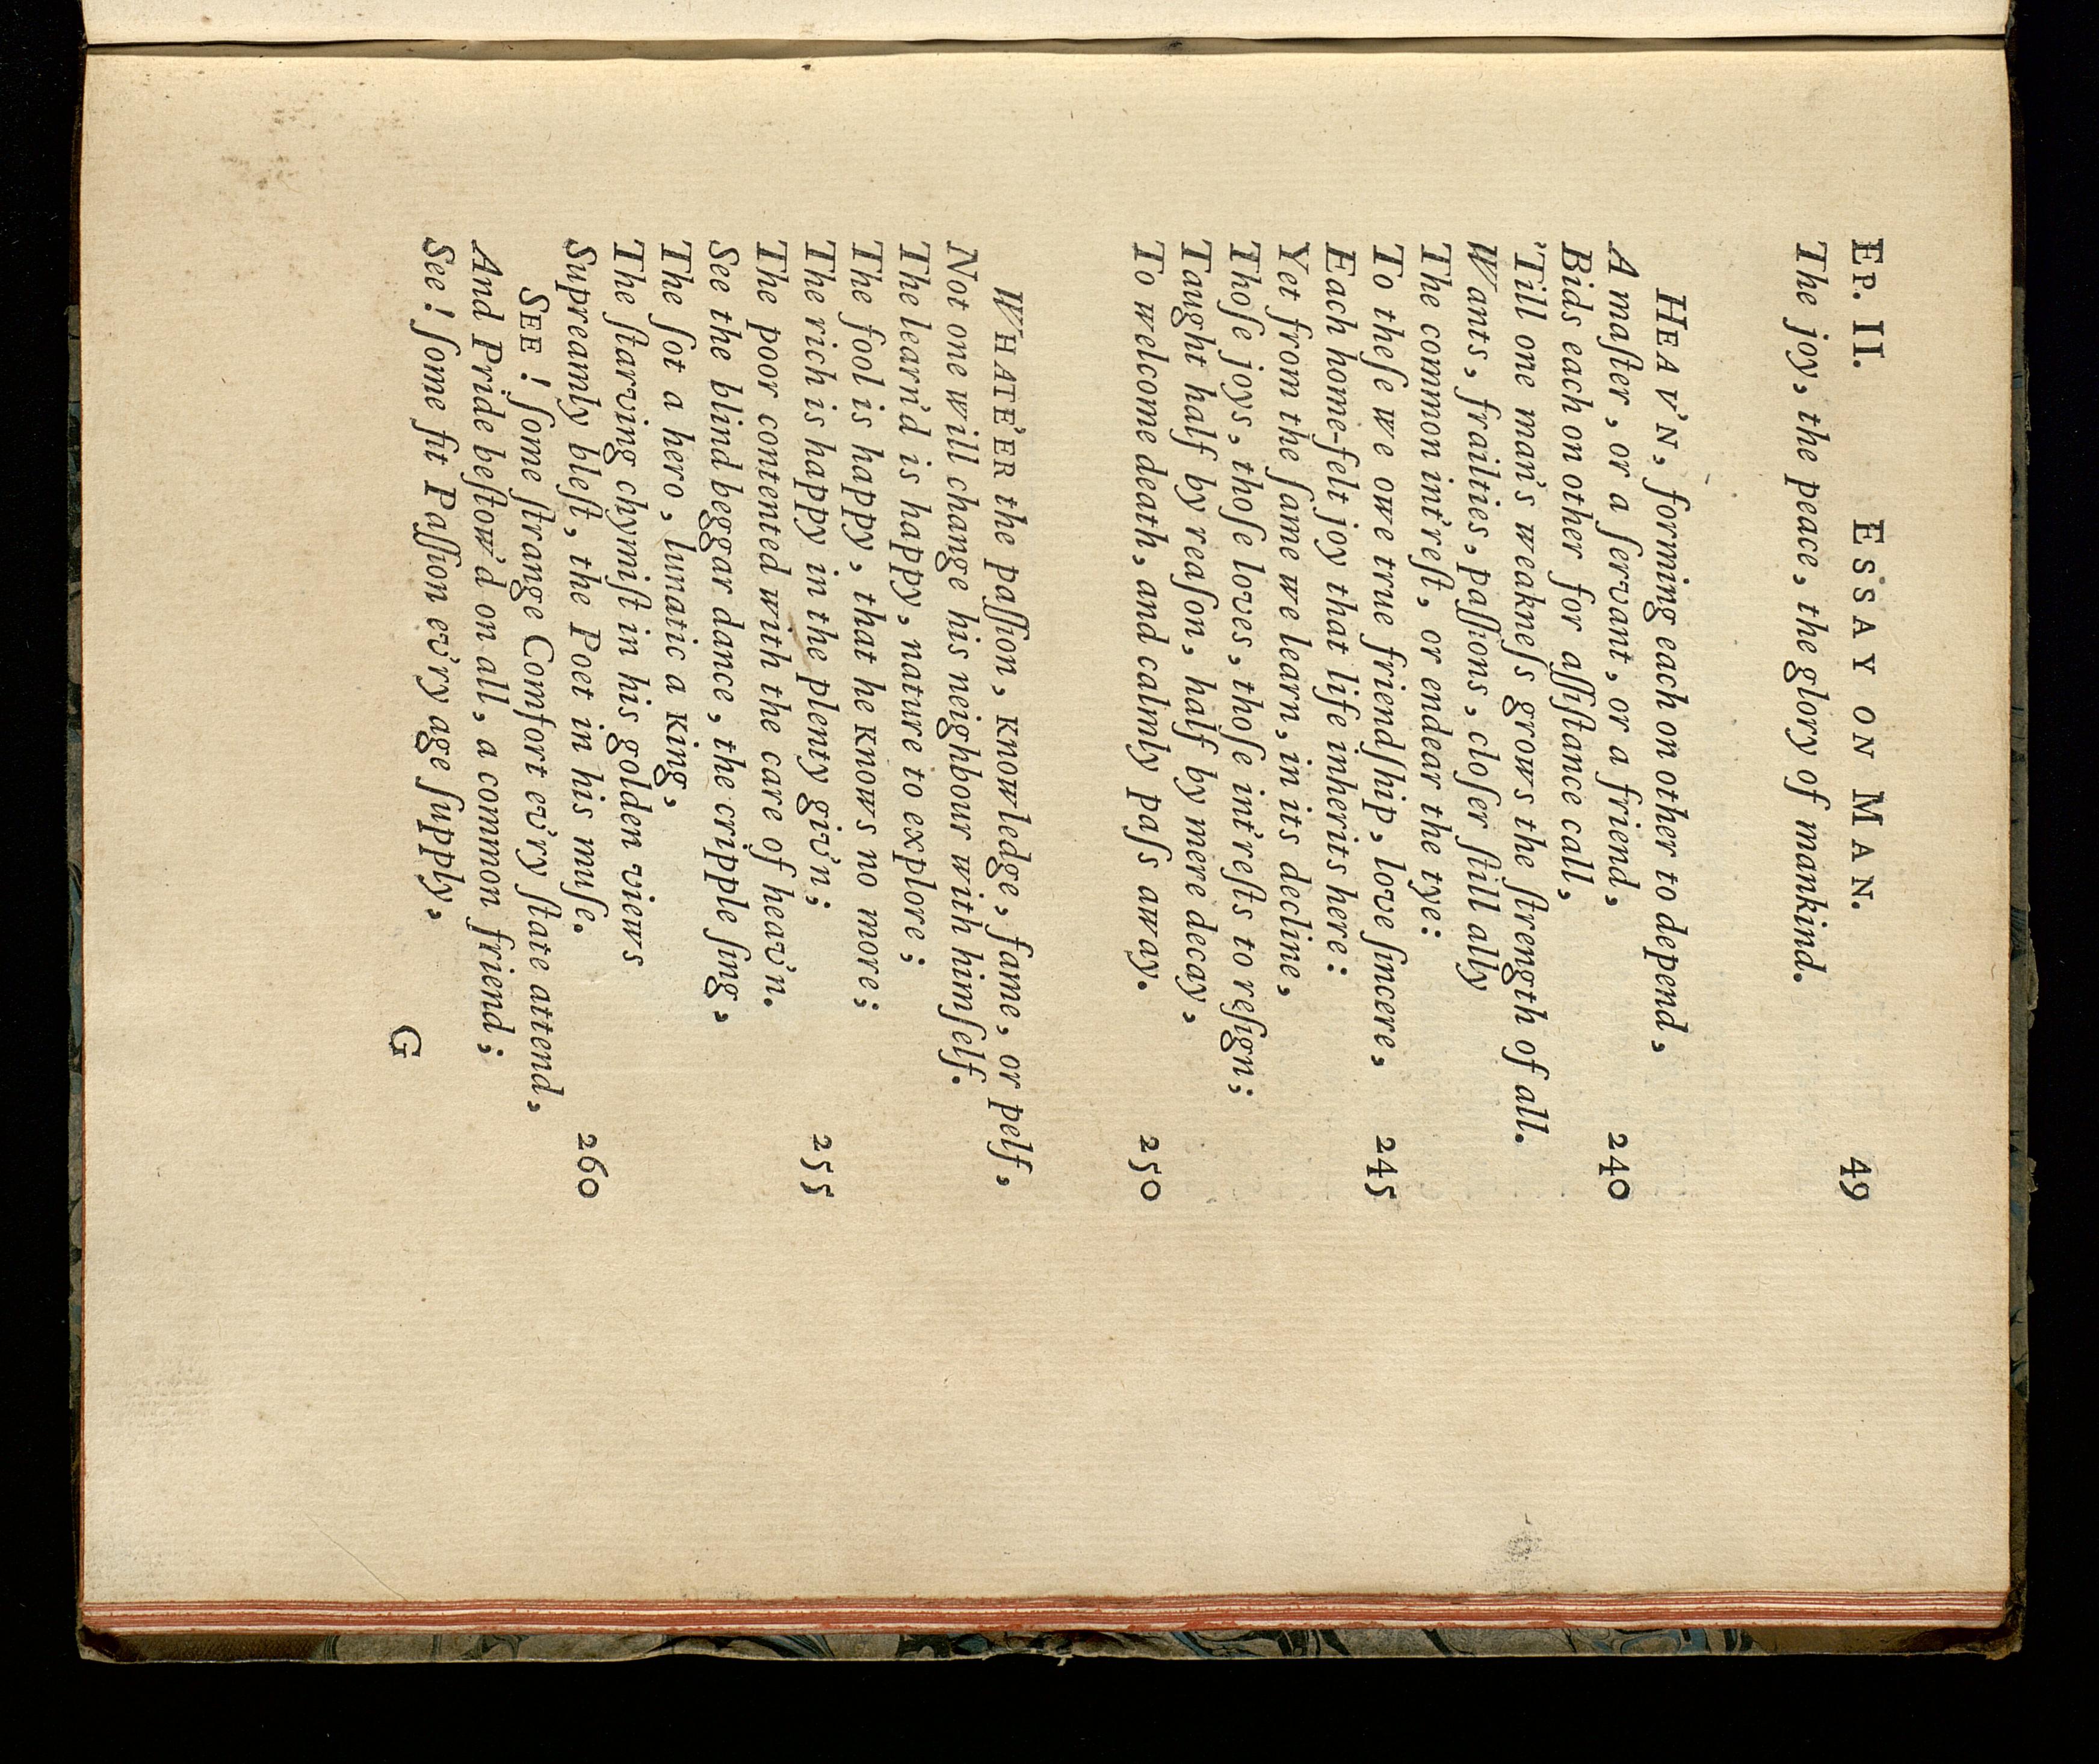 Ep. II. Essay on Man. 49
The joy, the peace, the glory of mankind.
Heav'n, forming each on other to depend,
A maſter, or a ſervant, or a friend, 240
Bids each on other for aſſiſtance call,
'Till one man's weakneſs grows the ſtrength of all.
Wants, frailties, paſſions, cloſer ſtill ally
The common int'reſt, or endear the tye:
To theſe we owe true friendſhip, love ſincere, 245
Each home-felt joy that life inherits here:
Yet from the ſame we learn, in its decline,
Thoſe joys, thoſe loves, thoſe int'reſts to reſign;
Taught half by reaſon, half by mere decay,
To welcome death, and calmly paſs away. 250
Whate'er the paſſion, knowledge, fame, or pelf,
Not one will change his neighbour with himſelf.
The learn'd is happy, nature to explore;
The fool is happy, that he knows no more;
The rich is happy in the plenty giv'n; 255
The poor contented with the care of heav'n.
See the blind beggar dance, the cripple ſing,
The ſot a hero, lunatic a king,
The ſtarving chymiſt in his golden views
Supreamly bleſt, the Poet in his muſe. 260
See! ſome ſtrange Comfort ev'ry ſtate attend,
And Pride beſtow'd on all, a common friend;
See! ſome fit Paſſion ev'ry age ſupply,
G